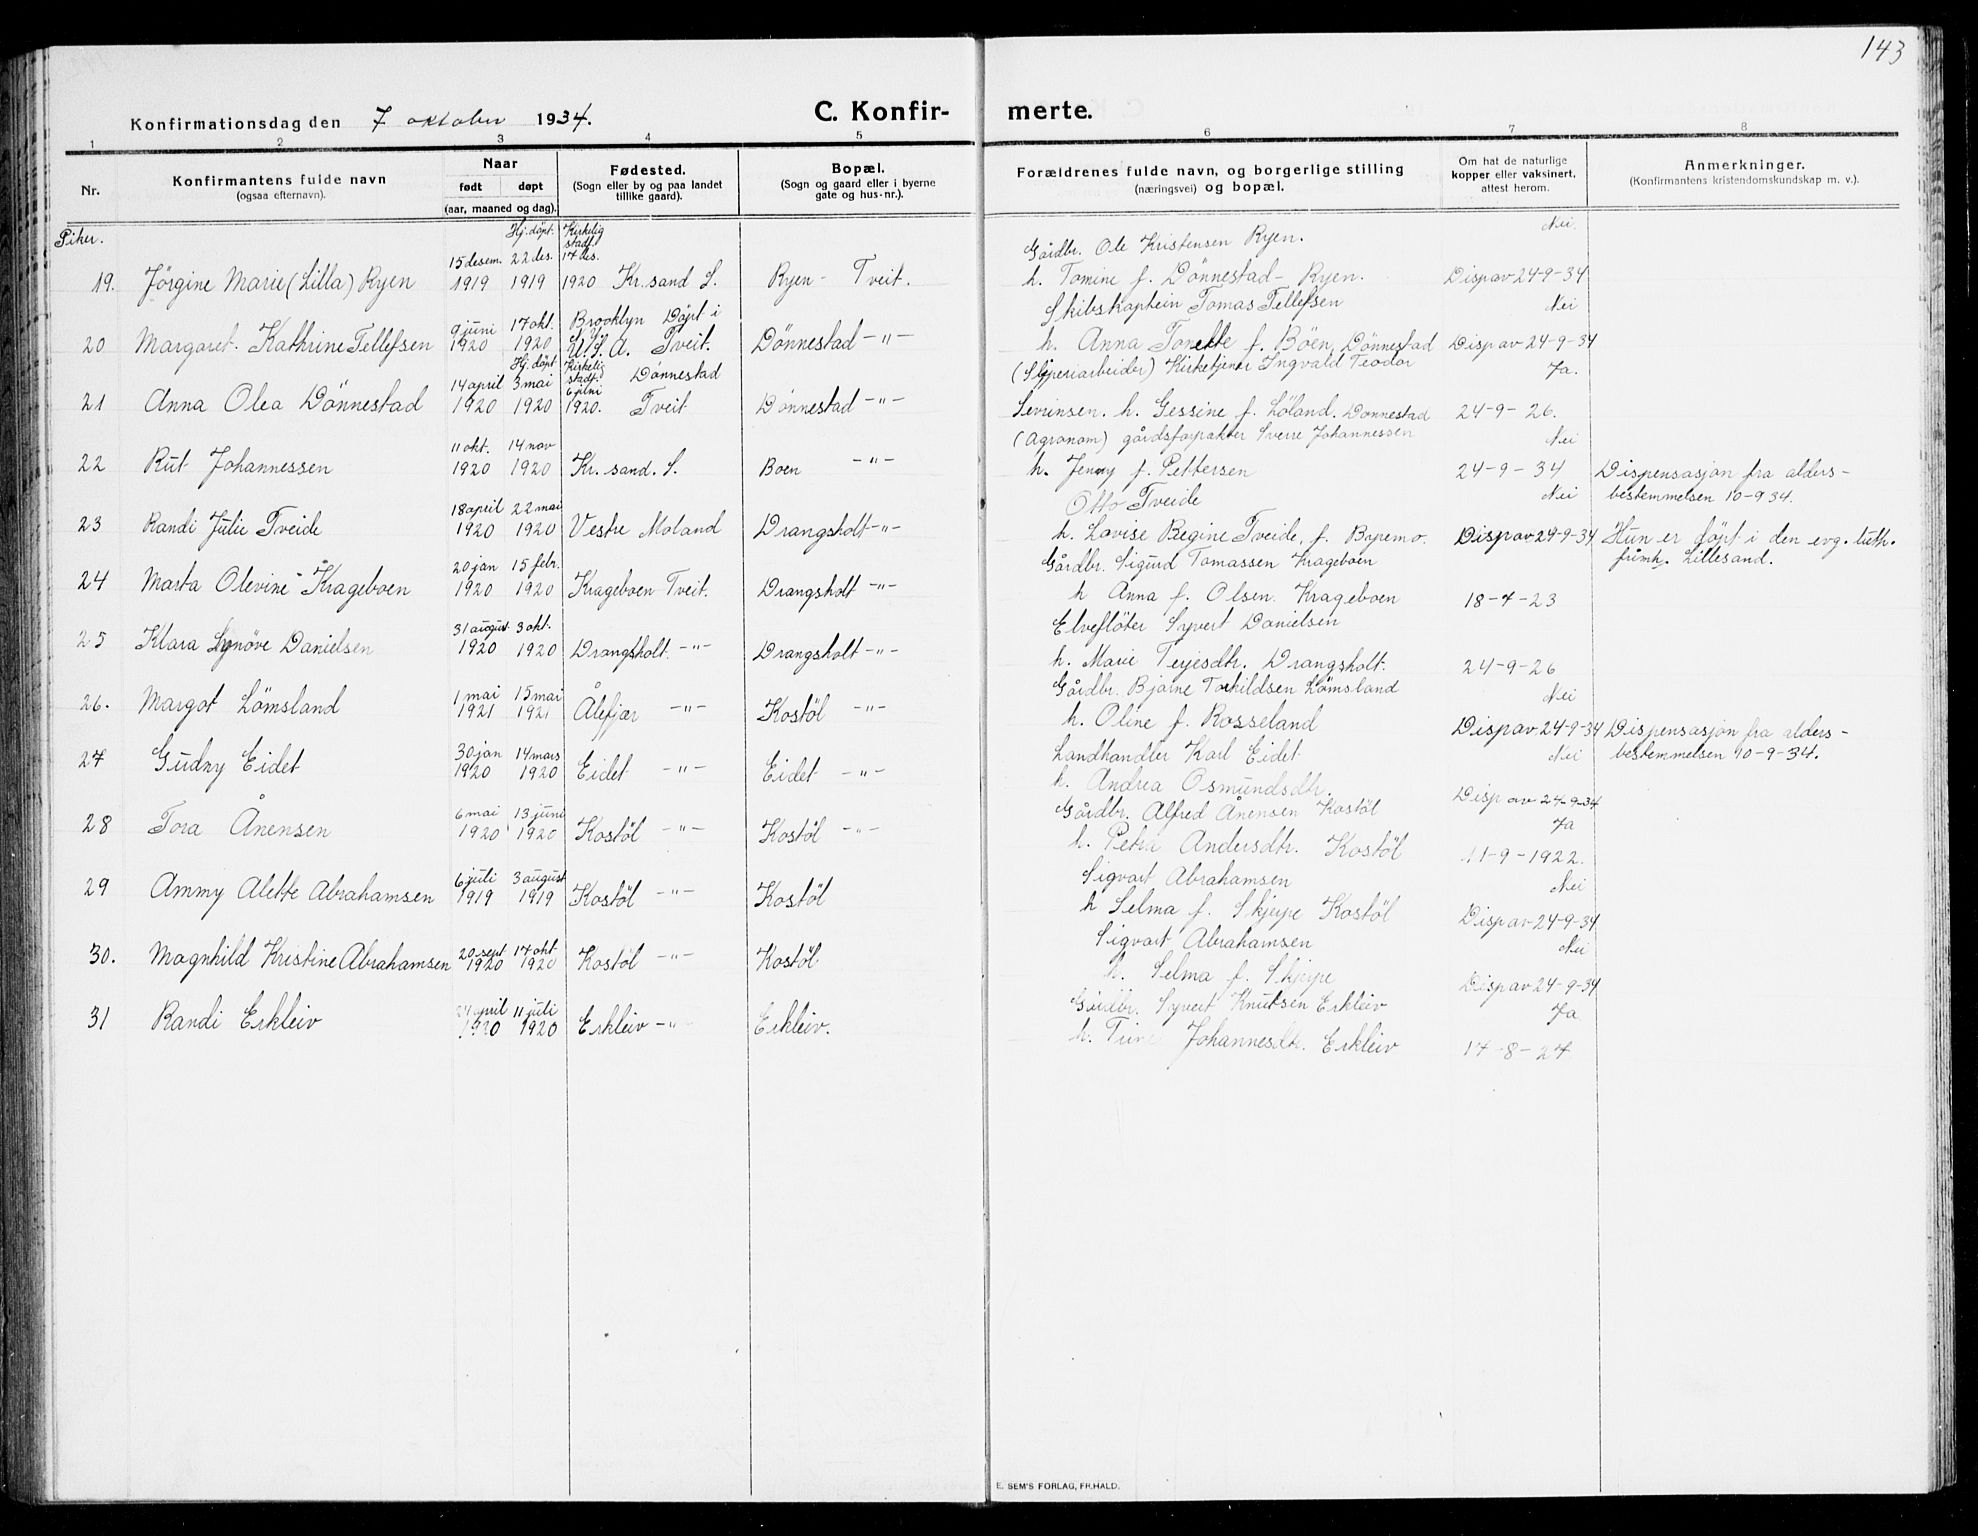 143
Konfirmationsdag den 7 oktober 1934.
C. Konfir- merte.
1 2 3 4 5 6 7 8
Nr.
Konfirmantens fulde navn
(ogsaa efternavn).
Naar
født døpt
(aar, maaned og dag).
Fødested.
(Sogn eller by og paa landet
tillike gaard).
Bopæl.
(Sogn og gaard eller i byerne
gate og hus-nr.).
Forældrenes fulde navn, og borgerlige stilling
(næringsvei) og bopæl.
Om hat de naturlige
kopper eller vaksinert,
attest herom.
Anmerkninger.
(Konfirmantens kristendomskundskap m. v.).
Piker.
Hj. döpt. Kirkelig
stadf.
15 desem. 22 des. 17 des.
19. Jörgine Marie (Lilla) Ryen 1919 1919 1920 Kr. sand S. Ryen - Tveit.
Gårdbr. Ole Kristensen Ryen.
h. Tomine f. Dönnestad - Ryen.
Nei.
Disp av 24-9-34
9 juni 17 okt. Brooklyn Döpt i
N.Y.
20 Margaret. Kathrine Tellefsen 1920 1920 U.S.A. Tveit. Dönnestad -"-
Skibskaptein Tomas Tellefsen
h. Anna Tonette f. Böen, Dönnestad
Nei
Disp av 24-9-34
Hj. döpt Kirkelig
stadf. Dönnestad
14 april 3 mai 6 juni
21 Anna Olea Dönnestad 1920 1920 1920. Tveit Dönnestad -"-
(Sliperiarbeider) Kirketjener Ingvald Teodor
Sevrinsen. h. Gessine f. Löland. Dönnestad
Ja.
24-9-26.
11 okt. 14 nov
22 Rut Johannessen 1920 1920 Kr. sand. S. Boen -"-
(Agronom) gårdsforpakter Sverre Johannessen
h. Jenny f. Pettersen
Nei
24-9-34
Dispensasjon fra alders-
bestemmelsen 10-9 34.
18 april 22 mai
23 Randi Julie Tveide 1920 1920 Vestre Moland Drangsholt -"-
Otto Tveide
h. Lovise Regine Tveide, f. Bspemo.
Nei
Disp av 24-9-34
Hun er döpt i den evg. luth.
frimh. Lillesand.
20 jan 15 febr.
24 Marta Olevine Krageboen 1920 1920 Krageboen Tveit. Drangsholt -"-
Gårdbr. Sigurd Tomassen Krageboen
h Anna f. Olsen. Krageboen
18-7-23
31 august 3 okt.
25 Klara Synöve Danielsen 1920 1920 Drangsholt. -"- Drangsholt -"-
Elveflöter Syvert Danielsen
h. Marie Terjesdtr. Drangsholt.
24-9-26
1 mai 15 mai
26. Margot Lömsland 1921 1921 Ålefjær -"- Kostöl -"-
Gårdbr. Bjarne Torkildsen Lömsland
h. Oline f. Rosseland
Nei
Disp av 24-9-34
Dispensasjon fra alders-
bestemmelsen 10-9-34.
30 jan 14 mars
27 Gudny Eidet 1920 1920 Eidet -"- Eidet -"-
Landhandler Karl Eidet
h. Andrea Osmundsdtr.
Nei
Disp av 24-9-34
6 mai 13 juni
28 Tora Ånensen 1920 1920 Kostöl -"- Kostöl -"-
Gårdbr. Alfred Ånensen Kostöl
h. Petra Andersdtr. Kostöl
Ja
11-9-1922.
6 juli 3 august
29 Ammy Alette Abrahamsen 1919 1919 Kostöl -"- Kostöl
Sigvart Abrahamsen
h Selma f. Skjerpe Kostöl
Nei
Disp av 24-9-34
20 sept 17 okt
30. Magnhild Kristine Abrahamsen 1920 1920 Kostöl -"- Kostöl
Sigvart Abrahamsen
h. Selma f. Skjerpe
Nei
Disp av 24-9-34
24 april 11 juli
31 Randi Erkleiv 1920 1920 Erkleiv -"- Erkleiv.
Gårdbr. Syvert Knutsen Erkleiv
h. Trine Johannesdtr. Erkleiv
Ja
17-8-27
E. SEM'S FORLAG, FR.HALD.